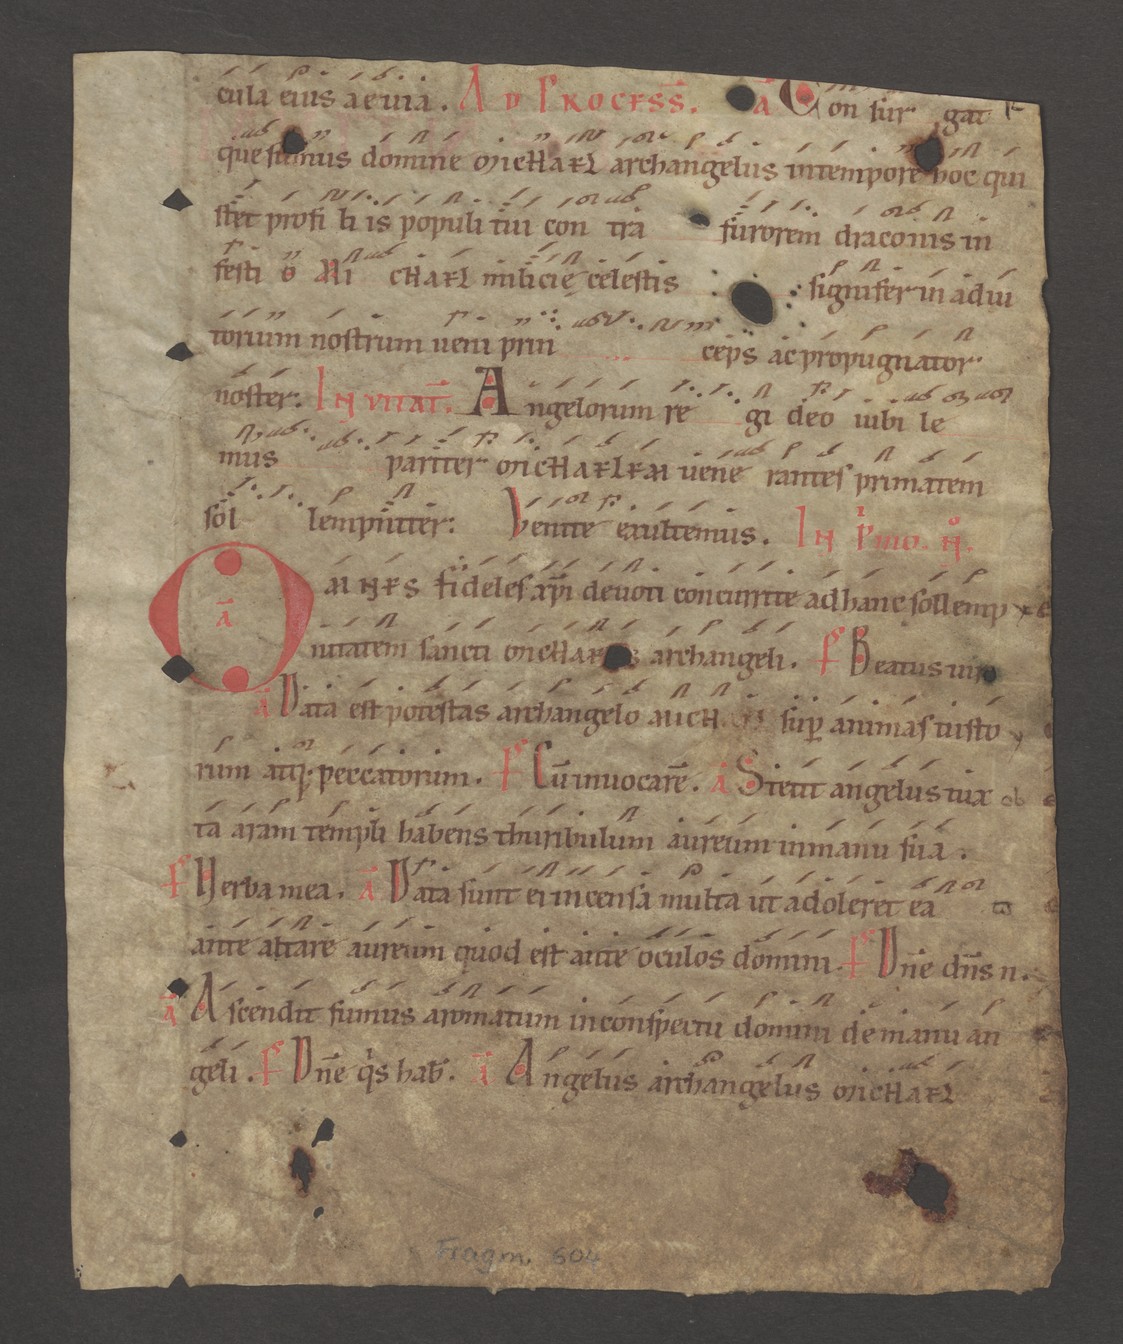 cula eius aeuia. AD PROCESS̄. ā Con sur gat
que sumus domine MICHAEL archangelus intempore hoc qui
stet profi li is populi tui con tra furorem draconis in
festi o MI CHAEL milicię celestis signifer in adiu
torium nostrum ueni prin ceps ac propugnator
noster: IN VITAT̄. Angelorum re gi deo iubi le
mus pariter MICHAELEM uene rantes primatem
sol lempniter: Venite exultemus. IN Pmo. N̊.
OMNES fideles xp̄i deuoti concurrite ad hanc sollemp
ā
nitatem sancti MICHAELIS archangeli. ps Beatus uir
ā Data est potestas archangelo MICH sup̱ animas iusto
rum atq; peccatorum. ps Cū inuocarē. ā Stetit angelus iux
ta aram templi habens thuribulum aureum inmanu sua.
ps Verba mea. ā Data sunt ei incensa multa ut adoleret ea
ante altare aureum quod est ante oculos domini. ps Dn̄e dn̄s n.
ā Ascendit fumus aromatum inconspectu domini de manu an
geli. ps Dn̄e q̇s hab̄. ā Angelus archangelus MICHAEL
Fragm. 604